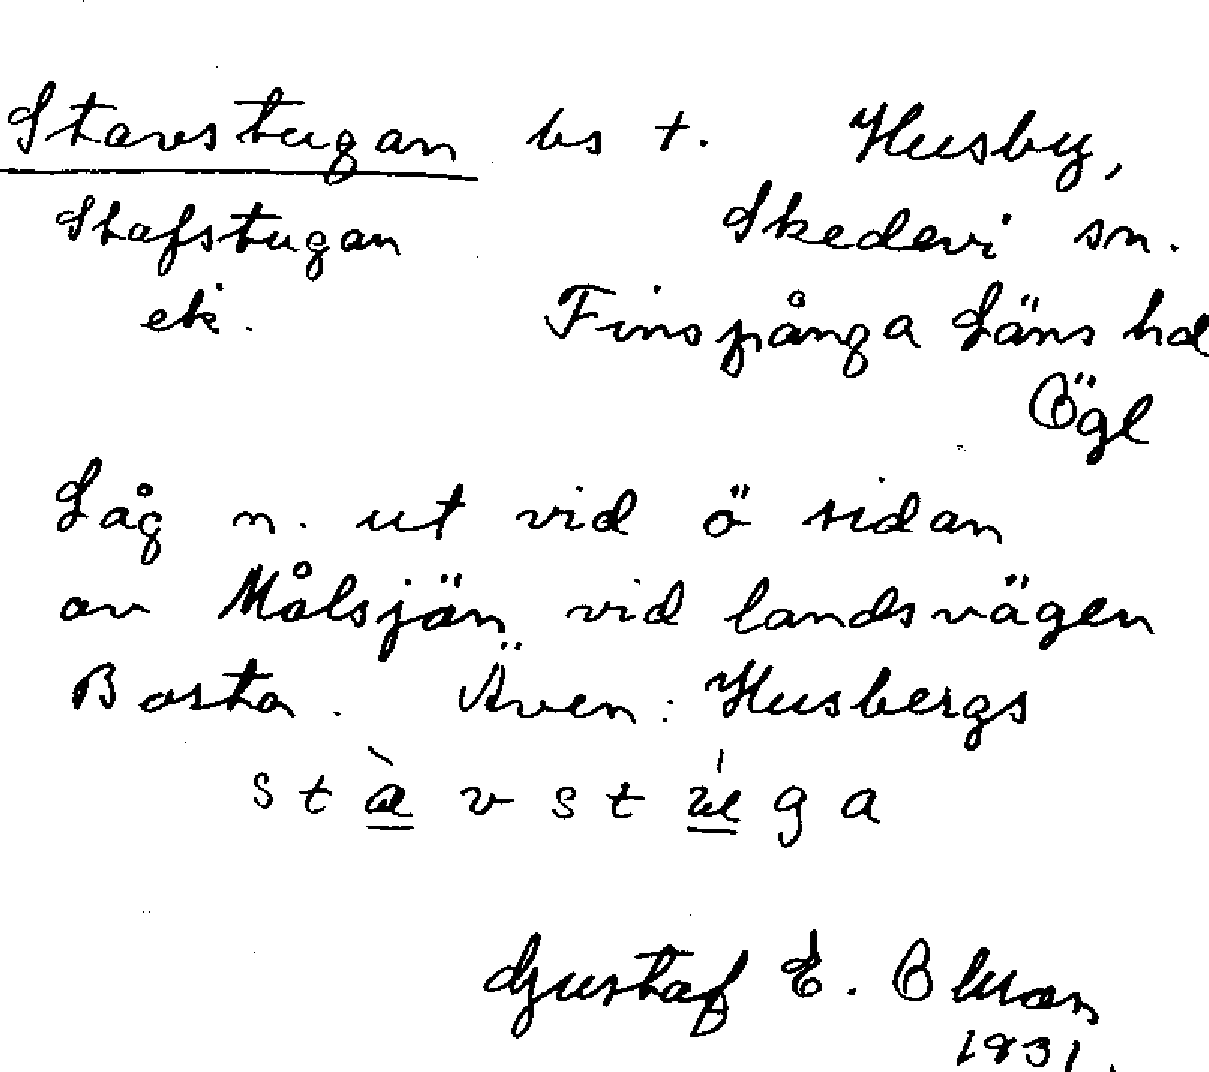 Stavstugan bs t. Husby,
Stafstugan Skedevi sn.
ek. Finspånga Läns hd
Ögl
Låg n. ut vid ö sidan
av Målsjön vid landsvägen
Borta. Även: Husbergs
s t à v s t ú g a
Gustaf E.
1931.